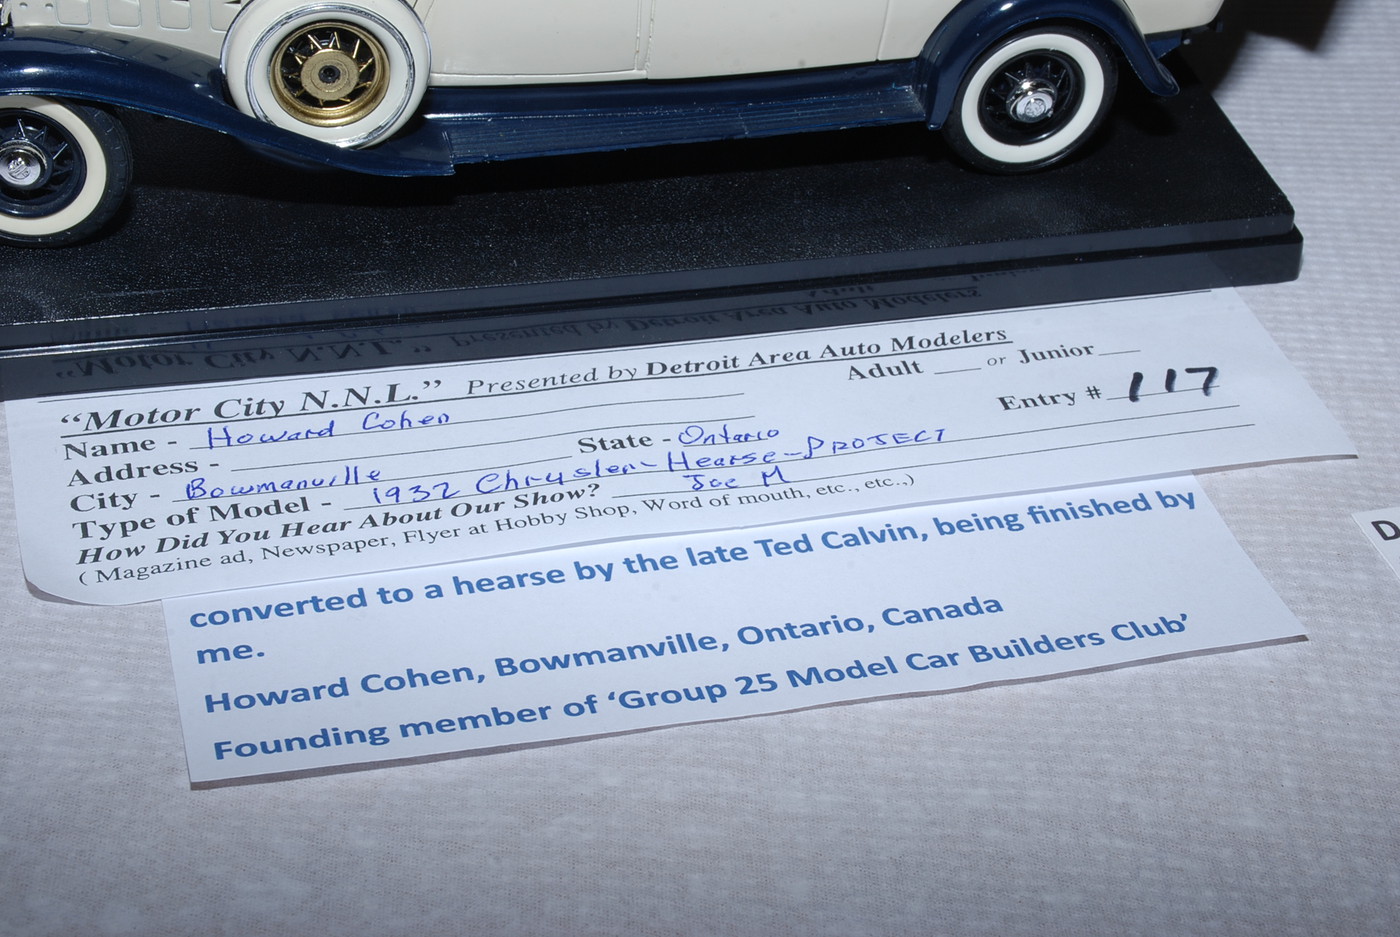 "Motor City N.N.L." Presented by Detroit Area Auto Modelers
Adult ____ or Junior____
Name - Howard Cohen
Entry # 117
Address -
State - Ontario
City - Bowmanville
Type of Model - 1932 Chrysler - Hearse - PROJECT
How Did You Hear About Our Show? Joe M
( Magazine ad, Newspaper, Flyer at Hobby Shop, Word of mouth, etc., etc.,)
converted to a hearse by the late Ted Calvin, being finished by
me.
Howard Cohen, Bowmanville, Ontario, Canada
Founding member of ‘Group 25 Model Car Builders Club’
D